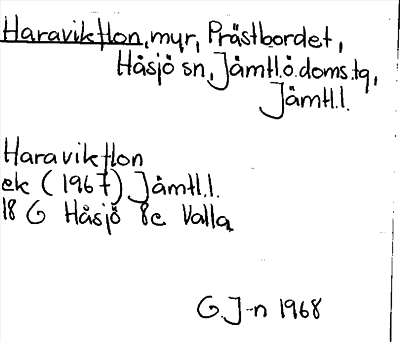 Haravikflon, myr, Prästbordet,
Håsjö sn, Jämtl.ö.doms.tg,
Jämtl.l.
Haravikflon
ek (1967) Jämtl.l.
18 G Håsjö 8c Valla
G. J-n 1968